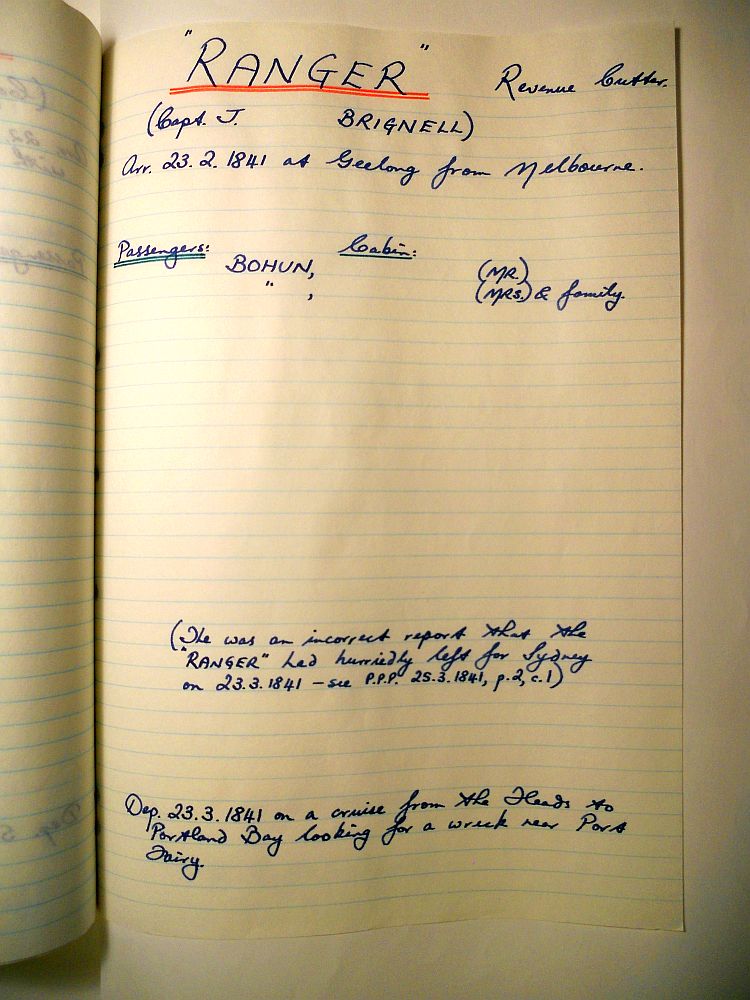 "RANGER" Revenue Cutter.
(Capt. J. BRIGNELL)
Arr. 23.2.1841 at Geelong from Melbourne.
Passengers: Cabin:
BOHUN, (MR.)
" , (MRS.) & family.
(The was an incorrect report that the
"RANGER" had hurriedly left for Sydney
on 23.3.1841 – see P.P.P. 25.3.1841, p.2, c.1)
Dep. 23.3.1841 on a cruise from the Heads to
Portland Bay looking for a wreck near Port
Fairy.